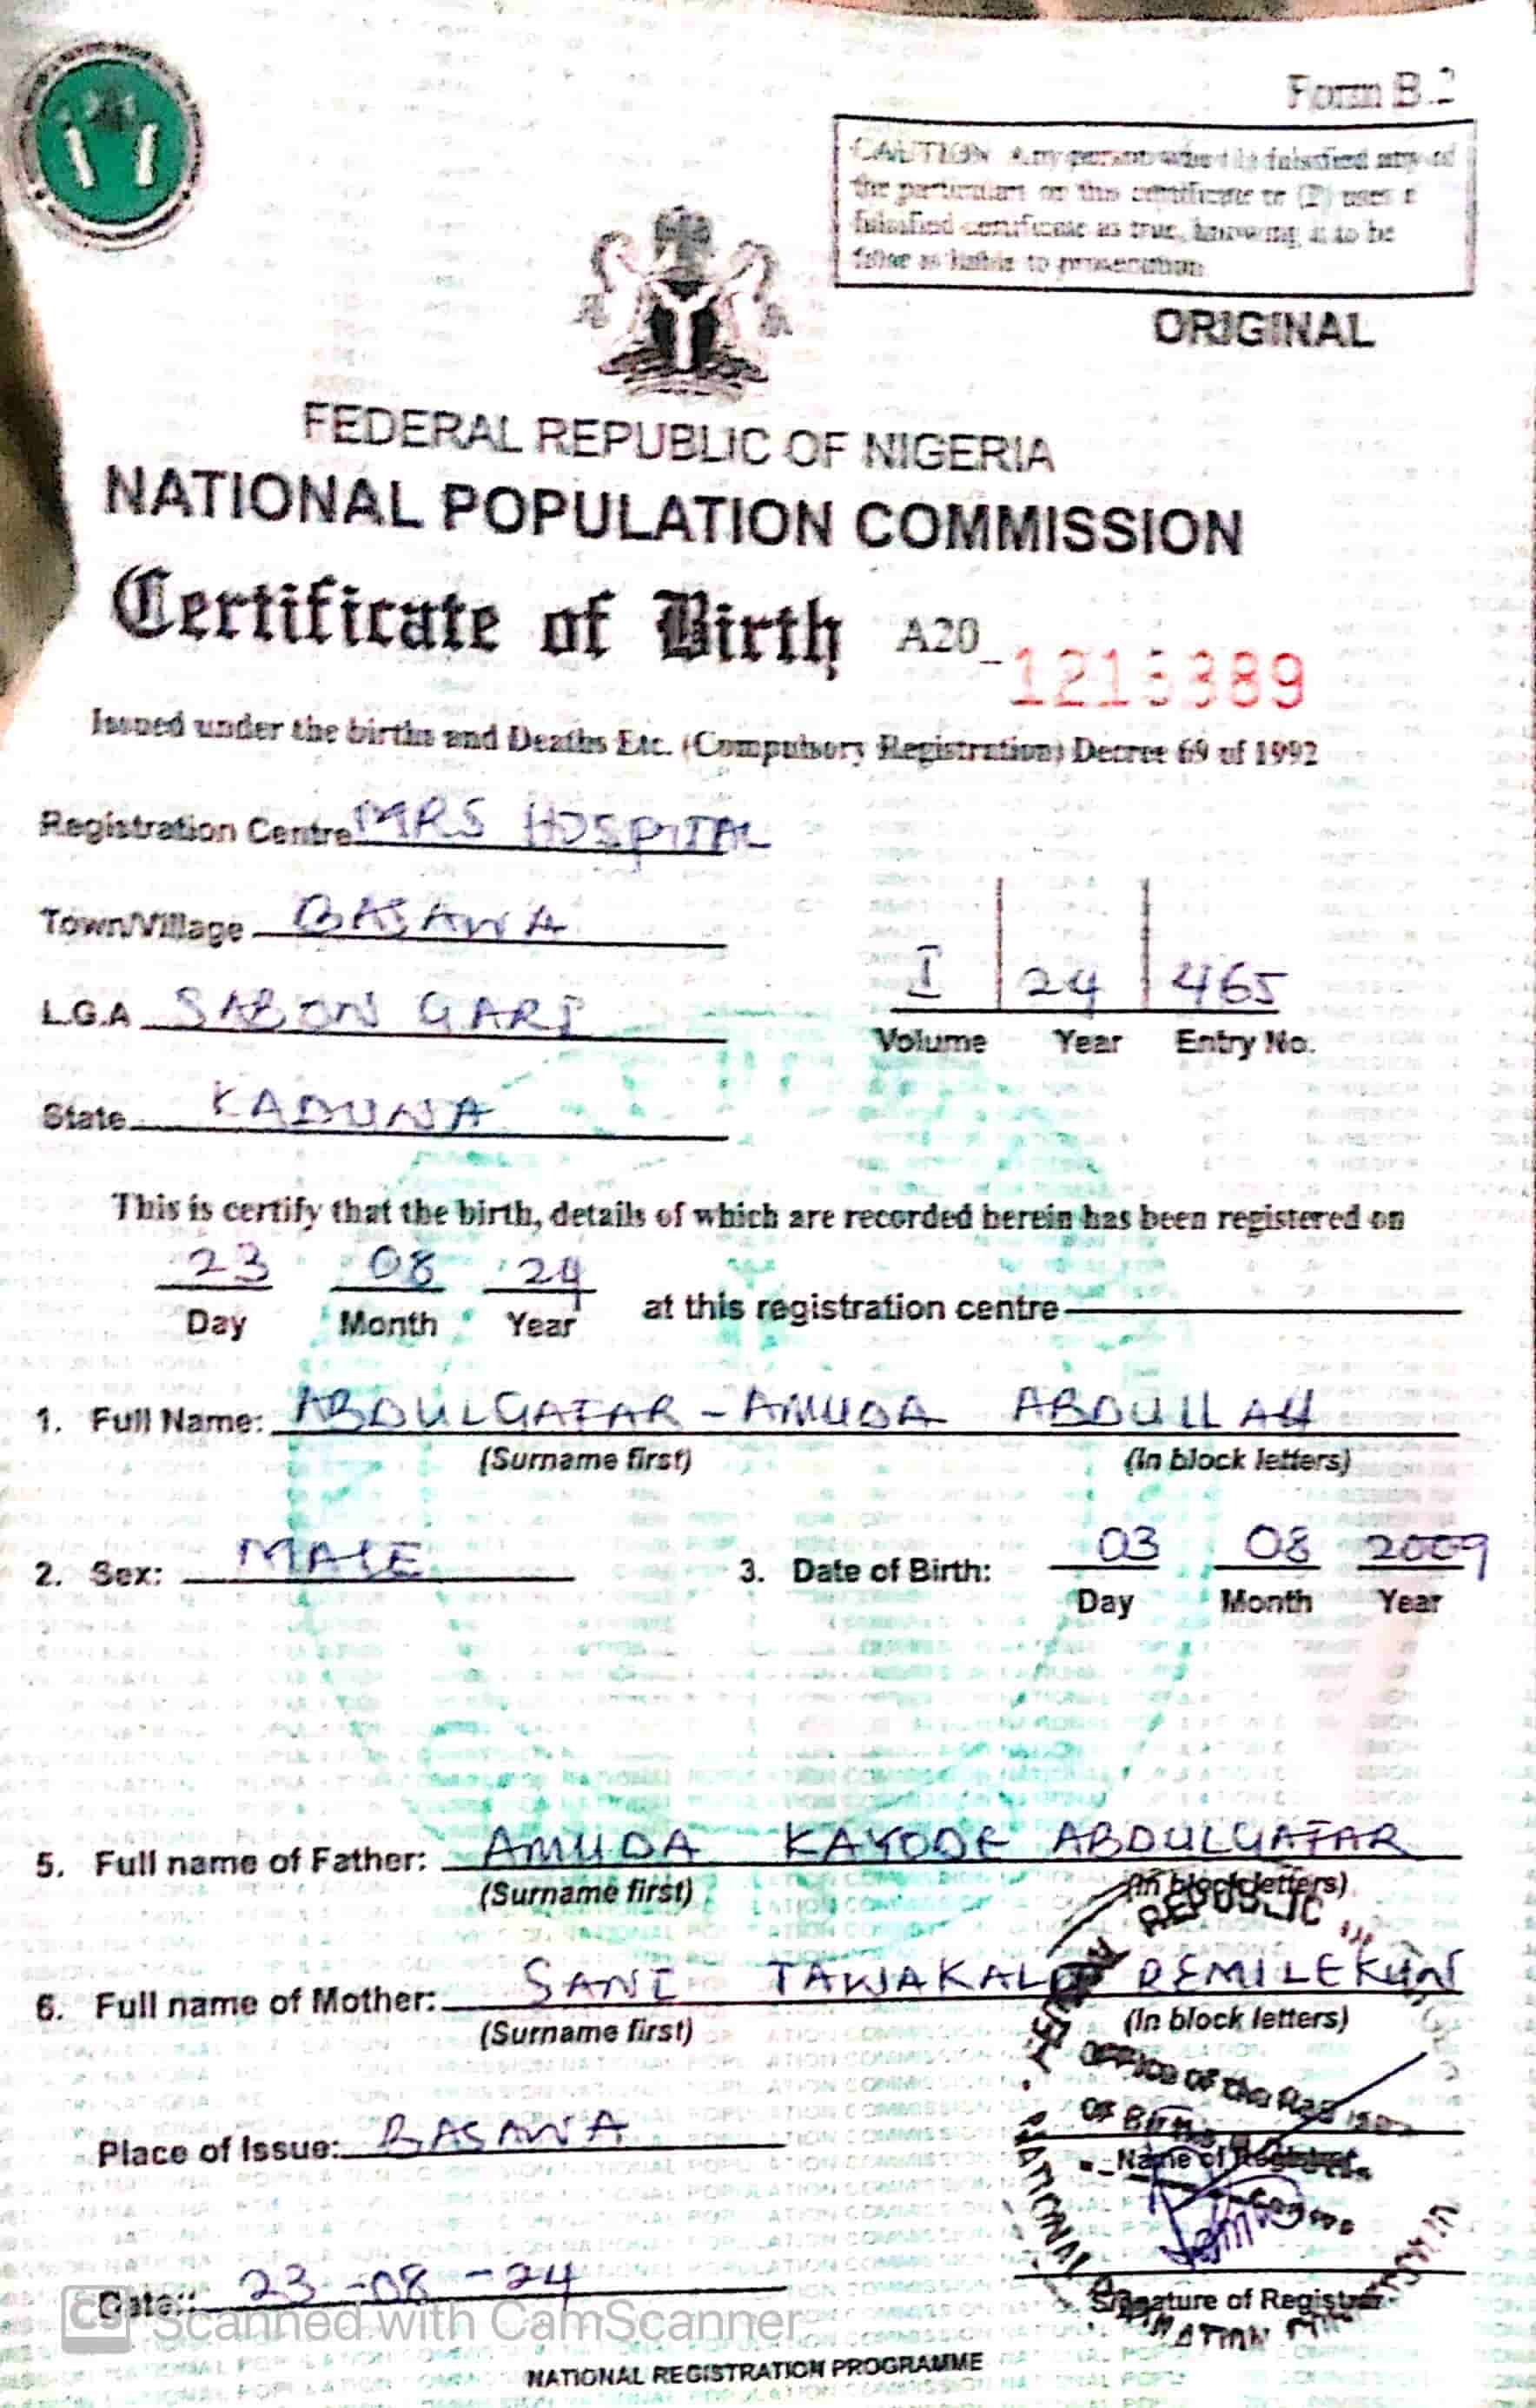 Form B.2
CAUTION Any person who (1) falsified any of
the particulars on this certificate or (2) uses a
falsified certificate as true, knowing it to be
false is liable to prosecution
ORIGINAL
FEDERAL REPUBLIC OF NIGERIA
NATIONAL POPULATION COMMISSION
Certificate of Birth A20_
Issued under the births and Deaths Etc. (Compulsory Registration) Decree 69 of 1992
Registration Centre MRS HOSPITAL
Town/Village BASAWA
L.G.A SABON GARI
I 24 465
Volume Year Entry No.
State KADUNA
This is certify that the birth, details of which are recorded herein has been registered on
23 08 24
Day Month Year at this registration centre
1. Full Name: ABDULGAFAR-AMUDA ABDULLAH
(Surname first) (In block letters)
2. Sex: MALE 3. Date of Birth: 03 08 2009
Day Month Year
5. Full name of Father: AMUDA KAYODE ABDULGAFAR
(Surname first) (In block letters)
6. Full name of Mother: SANI TAWAKALT REMILEKUN
(Surname first) (In block letters)
Place of Issue: BASAWA
Name of Registrar
Date: 23-08-24
Signature of Registrar
CS Scanned with CamScanner
NATIONAL REGISTRATION PROGRAMME